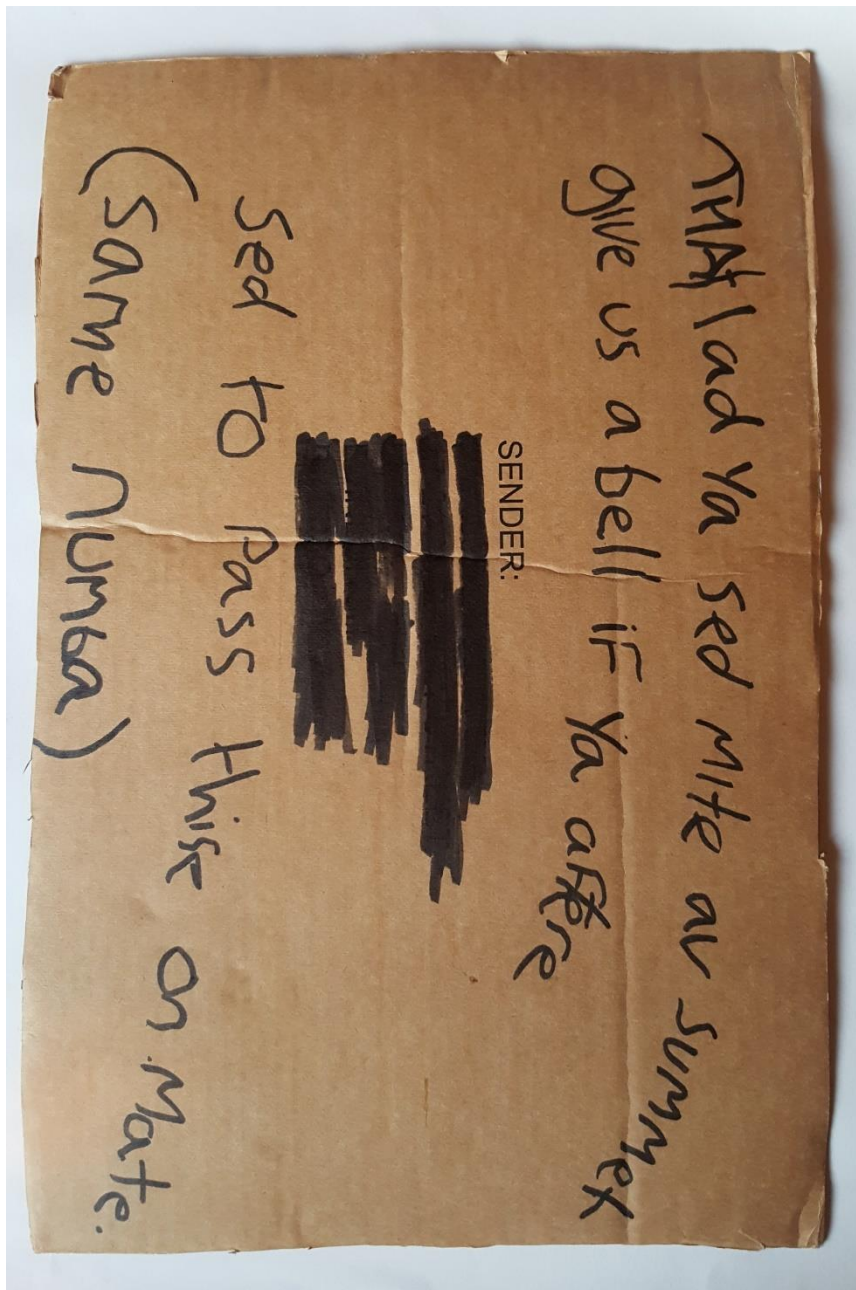 THAt lad Ya sed Mite av summex
give us a bell iF Ya aftere
SENDER:
sed to Pass this on Mate.
(same numba)